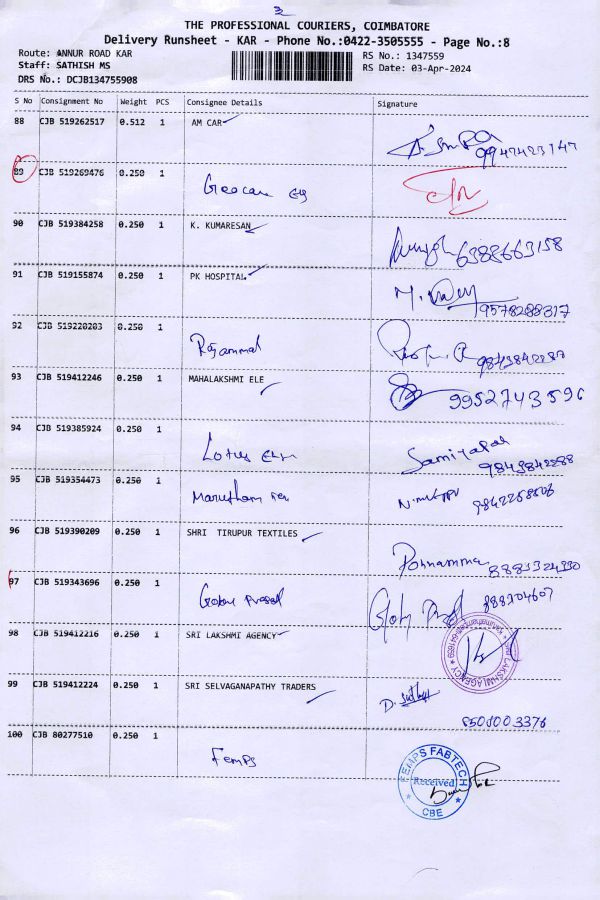 3
THE PROFESSIONAL COURIERS, COIMBATORE
Delivery Runsheet - KAR - Phone No.:0422-3505555 - Page No.:8
Route: ANNUR ROAD KAR
Staff: SATHISH MS
DRS No.: DCJB134755908
RS No.: 1347559
RS Date: 03-Apr-2024
S No Consignment No Weight PCS Consignee Details Signature
88 CJB 519262517 0.512 1 AM CAR
9947423147
89 CJB 519269476 0.250 1
90 CJB 519384258 0.250 1 K. KUMARESAN
6388663158
91 CJB 519155874 0.250 1 PK HOSPITAL
9578288317
92 CJB 519220203 0.250 1 Rajammal
9843842287
93 CJB 519412246 0.250 1 MAHALAKSHMI ELE
9952743596
94 CJB 519385924 0.250 1 Lotus
9843842288
95 CJB 519354473 0.250 1 Marutham
96 CJB 519390209 0.250 1 SHRI TIRUPUR TEXTILES
Ponnamma
97 CJB 519343696 0.250 1
888204607
98 CJB 519412216 0.250 1 SRI LAKSHMI AGENCY
SRI LAKSHMI AGENCY
99 CJB 519412224 0.250 1 SRI SELVAGANAPATHY TRADERS
8508003376
100 CJB 80277510 0.250 1 Femps
FEMPS FABTECH
Received
CBE